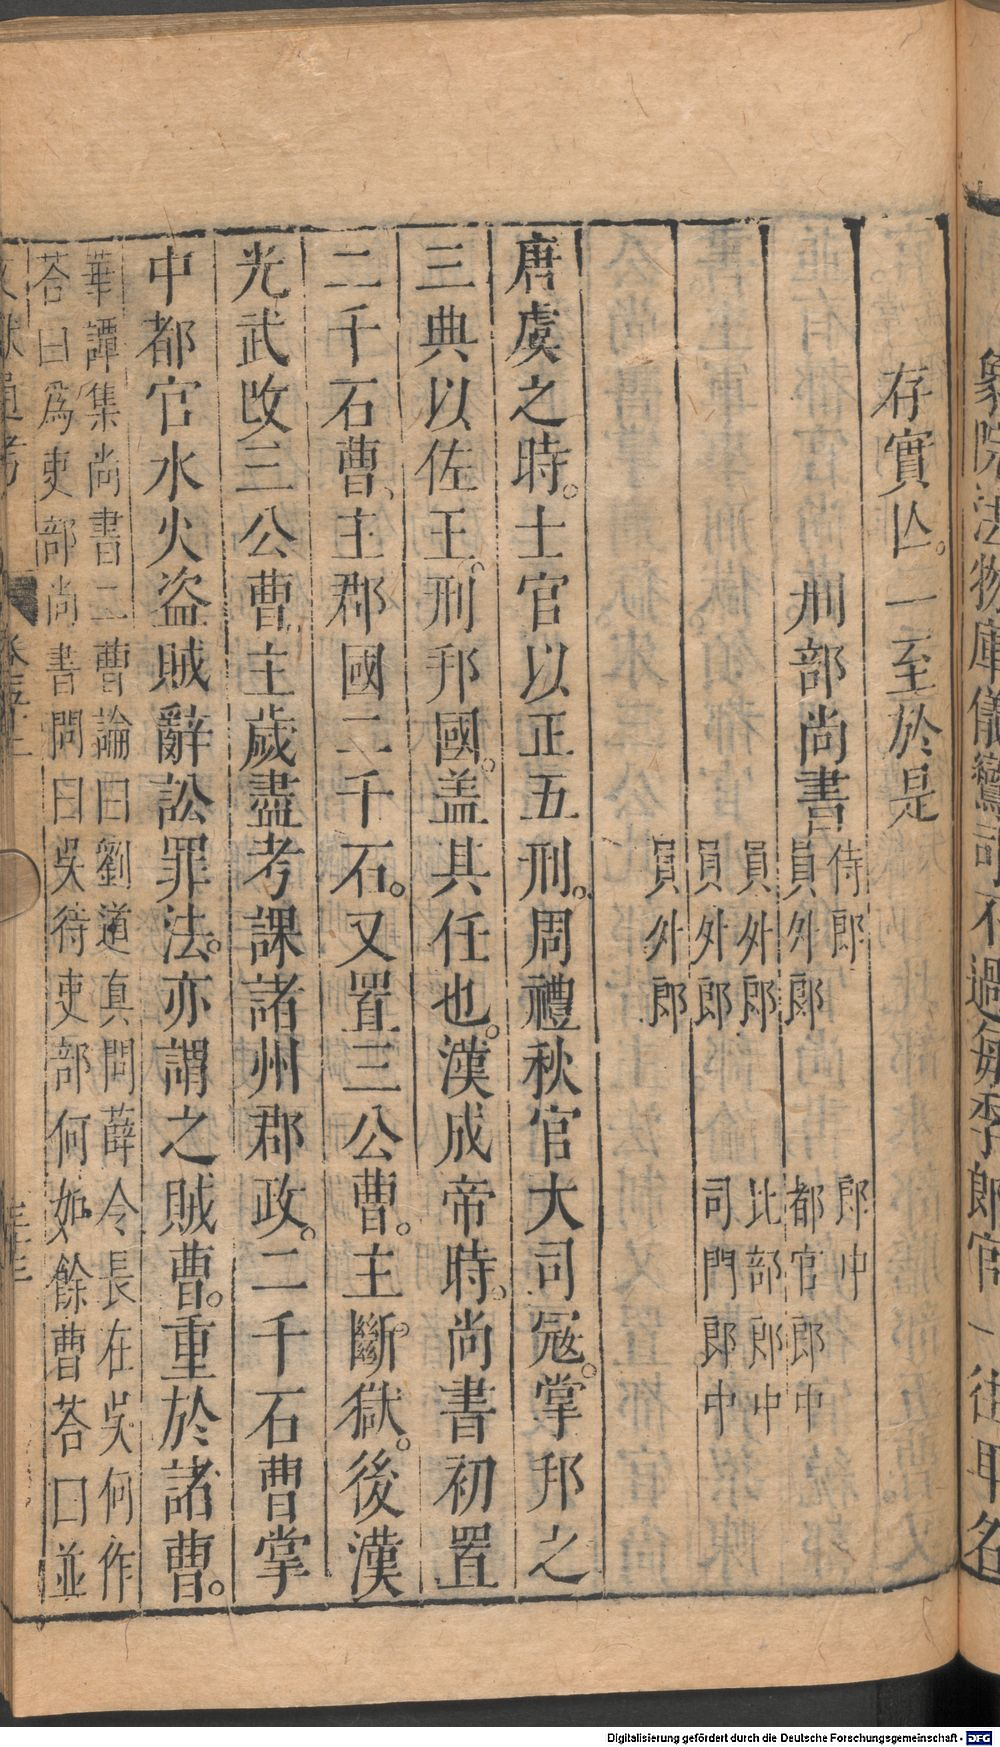 象院法物庫儀鸞司不過每季郎官一往耳名
存實亾。一至於是
刑部尚書
侍郎 郎中
員外郎 都官郎中
員外郎 比部郎中
員外郎 司門郎中
員外郎
唐虞之時。士官以正五刑。周禮秋官大司冦。掌邦之
三典以佐王。刑邦國。盖其任也。漢成帝時。尚書初置
二千石曹、主郡國二千石。又置三公曹。主斷獄。後漢
光武改三公曹、主歲盡考課諸州郡政。二千石曹掌
中都官水火盜賊辭訟罪法。亦謂之賊曹。重於諸曹。
華譚集尚書二曹論曰劉道真問薛令長在吳何作
荅曰爲吏部尚書問曰吳待吏部何如餘曹荅曰並
文獻通考
Digitalisierung gefördert durch die Deutsche Forschungsgemeinschaft - DFG